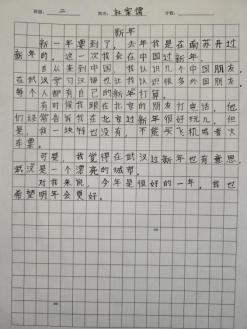 班级：二 姓名：杜宗儒 分数：
新年
新一年要到了，去年我是在南苏丹过
新年的。这一次我会在中国过新年。
从来到中国，我认识几个中国朋友，
在武汉学习汉语也让我认识很多外国朋友，
每个人都有自己的新年打算。
有时候我跟在北京的朋友打电话，他
们经常告诉我在北京过新年很好玩儿，但
是我一块钱也没有，不能买飞机或者火
车票。
可是，我觉得在武汉过新年也有意思，
武汉是一个漂亮的城市。
对我来说，今年是很好的一年，我也
希望明年会更好。